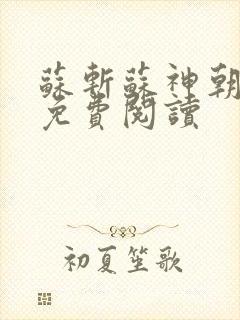 蘇斬蘇神朝
免費閱讀
初夏笙歌